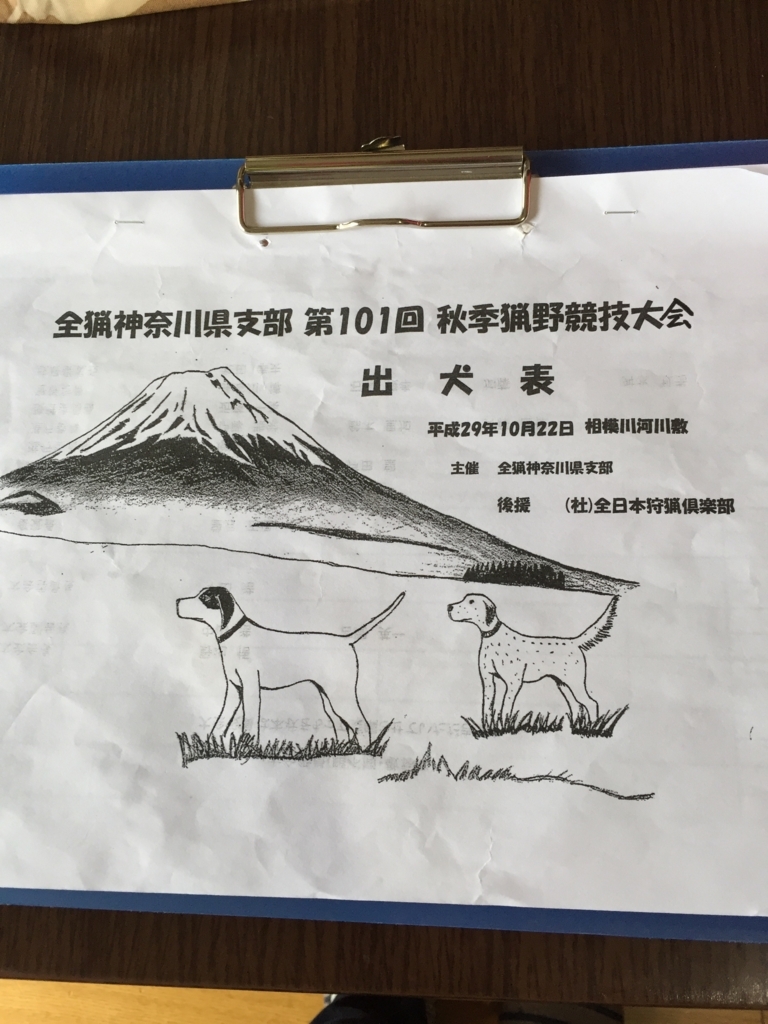 全猟神奈川県支部 第101回 秋季猟野競技大会
出 犬 表
平成29年10月22日 相模川河川敷
主催 全猟神奈川県支部
後援 (社)全日本狩猟倶楽部